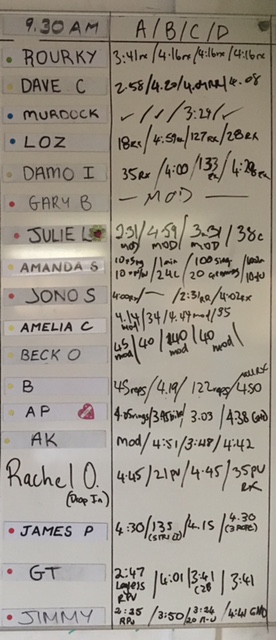 9.30 AM A/B/C/D
ROURKY 3:41rx/4:16rx/4:16rx/4:16rx
DAVE C 2:58/4.20/4.01RX/4.08
MURDOCK ✓/✓/3:29/✓
LOZ 18RX/4:59rx/127RX/28RX
DAMO I 35RX/4:00/133 rx/4:28rx
GARY B — MOD —
JULIE L 2:31 mod/4.59 MOD/3:31 MOD/38c
AMANDA S
JONO S /—/2:31RX/4:02rx
AMELIA C 4.14 mod/34/4.44mod/35
BECK O 45 mod/40/40 mod/40 mod
B 45reps/4.19/122reps/4.50
AP 3.03/4:38
AK mod/4:51/3:48/4:42
Rachel O. 4:45/21PV/4:45/35PV RX
(Drop In)
JAMES P 4:30/135 (STRICT)/4.15/4.30
GT 2:47 Layers RPV/4:01/3:41 C2B/3:41
JIMMY 2:25 RPV/3:50/3:24/4:41